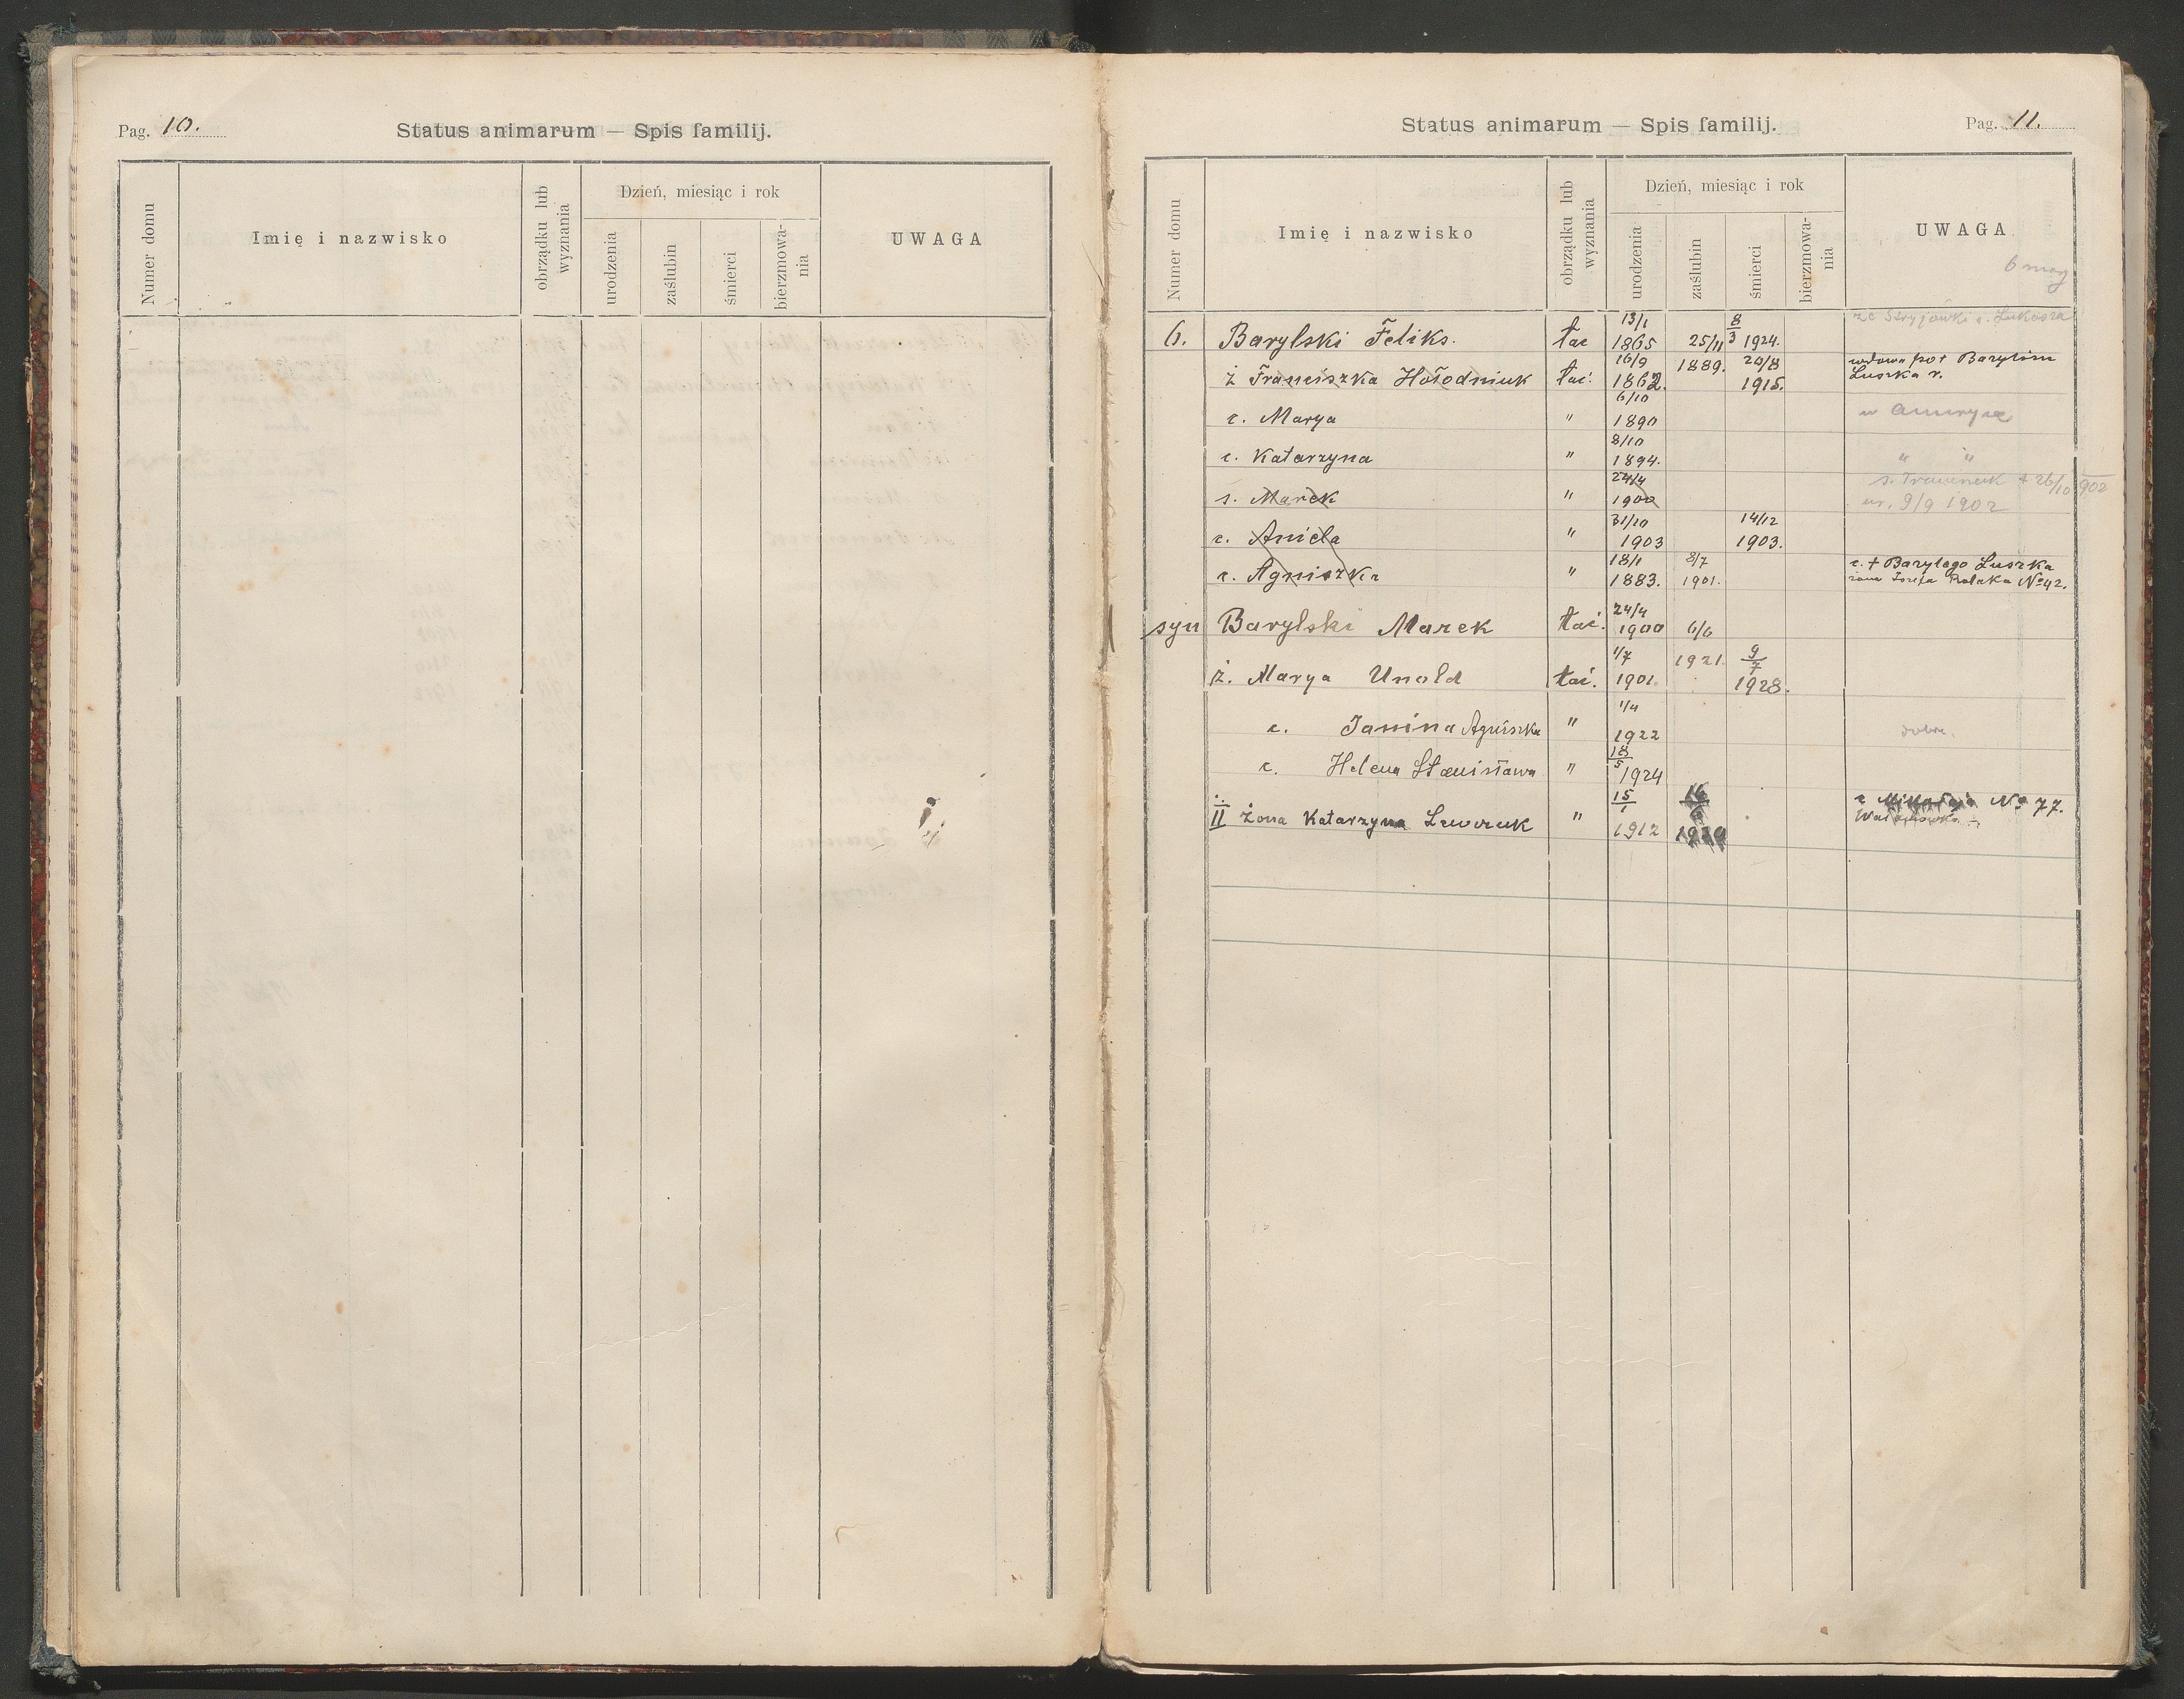 Pag. 10.
Status animarum — Spis familij.
Numer domu
Imię i nazwisko
obrządku lub wyznania
Dzień, miesiąc i rok
urodzenia
zaślubin
śmierci
bierzmowa-
nia
UWAGA
Status animarum — Spis familij.
Pag. 11.
Numer domu
Imię i nazwisko
obrządku lub wyznania
Dzień, miesiąc i rok
urodzenia
zaślubin
śmierci
bierzmowa-
nia
UWAGA
6 morg
6. Barylski Feliks. łac 13/1 1865 25/11 1889. 8/3 1924. ze Stryjówki s. Łukasza
ż Franciszka Hołodniuk łac. 16/9 1862. 20/8 1915. wdowa po + Barylim Luszka r.
c. Marya " 6/10 1890 w Ameryce
c. Katarzyna " 8/10 1894. " "
s. Marek " 24/4 1900 s. Franciszek + 26/10 902
ur. 9/9 1902
c. Aniela " 31/10 1903 14/12 1903.
c. Agnieszka " 18/1 1883. 8/7 1901. c. + Barylego Luszka
żona Józefa Polaka No 42.
syn Barylski Marek łac. 24/4 1900 6/6 1921.
ż. Marya Unold łac. 1/7 1901. 9/7 1928.
c. Janina Agnieszka " 1/4 1922
c. Helena Stanisława " 18/5 1924
II żona Katarzyna " 15/1 1912 16/6 1929 c Mikołaja No 77.